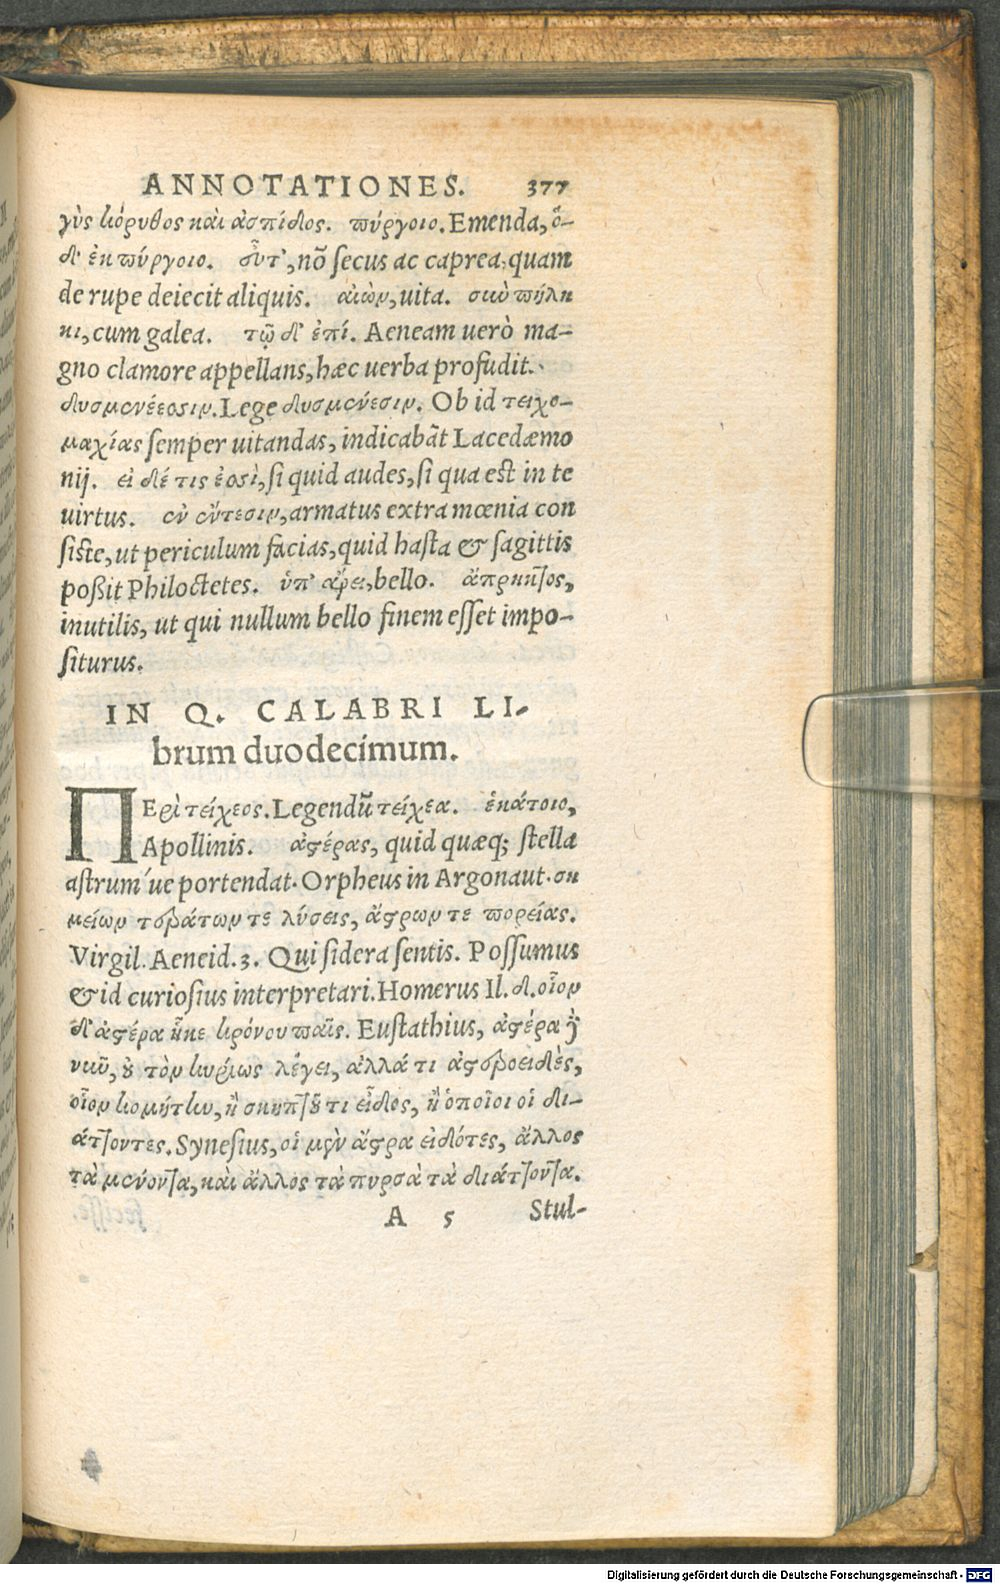 ANNOTATIONES. 377
γὺς κόρυθος καὶ ἀσπίδος. πύργοιο. Emenda, ὅ-
δ᾽ ἐκ πύργοιο. ἠΰτ᾽, nō secus ac caprea, quam
de rupe deiecit aliquis. αἰὼν, uita. σιὺ πήλη
κι, cum galea. τῷ δ᾽ ἐπί. Aeneam uerò ma-
gno clamore appellans, hæc uerba profudit.
δυσμενέεοσιν. Lege δυσμενέσιν. Ob id τειχο-
μαχίας semper uitandas, indicabāt Lacedæmo
nij. εἰ δέ τις ἐοσὶ, si quid audes, si qua est in te
uirtus. ἐν ἔντεσιν, armatus extra mœnia con
siste, ut periculum facias, quid hasta & sagittis
poßit Philoctetes. ὑπ᾽ ἄρει, bello. ἄπρηκτος,
inutilis, ut qui nullum bello finem esset impo-
siturus.
IN Q. CALABRI LI-
brum duodecimum.
ΠΕρὶ τείχεος. Legendū τείχεα. ἑκάτοιο,
Apollinis. ἀστέρας, quid quæq; stella
astrum´ue portendat. Orpheus in Argonaut. ση
μείων τεράτων τε λύσεις, ἄστρων τε πορείας.
Virgil. Aeneid. 3. Qui sidera sentis. Possumus
& id curiosius interpretari. Homerus Il. δ. οἷον
δ᾽ ἀστέρα ἧκε κρόνου παῖς. Eustathius, ἀστέρα
νιῦ, οὐ τὸν κυρίως λέγει, ἀλλά τι ἀστεροειδὲς,
οἷον κομήτην, ἢ σκηπτοῦ τι εἶδος, ἢ ὁποῖοι οἱ δι-
άττοντες. Synesius, οἱ μὲν ἄστρα εἰδότες, ἄλλος
τὰ μένοντα, καὶ ἄλλος τὰ πυρσὰ τὰ διάττοντα.
A 5 Stul-
Digitalisierung gefördert durch die Deutsche Forschungsgemeinschaft - DFG